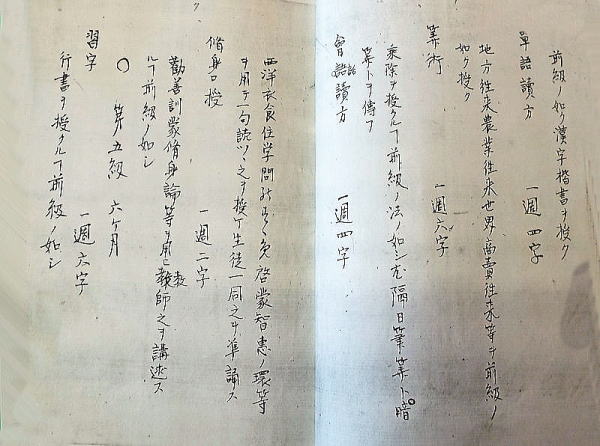 前級ノ如ク漢字楷書ヲ授ク
單語讀方 一週四字
地方往来農業往来世界商賣往来等ヲ前級ノ
如ク授ク
算術 一週六字
乗除ヲ授クルフ前級ノ法ノ如シ尤隔日筆算ト暗
算トヲ傳フ
會話讀方 一週四字
西洋衣食住学問ノスヽメ啓蒙智恵ノ環等
ヲ用テ一句読ツヽ之ヲ授ケ生徒一同之ヲ準誦ス
脩身口授 一週二字
勸善訓蒙脩身論等ヲ用ヒ教師之ヲ講述ス
ルフ前級ノ如シ
○ 第五級 六ケ月
習字 一週六字
行書ヲ授クルフ前級ノ如シ